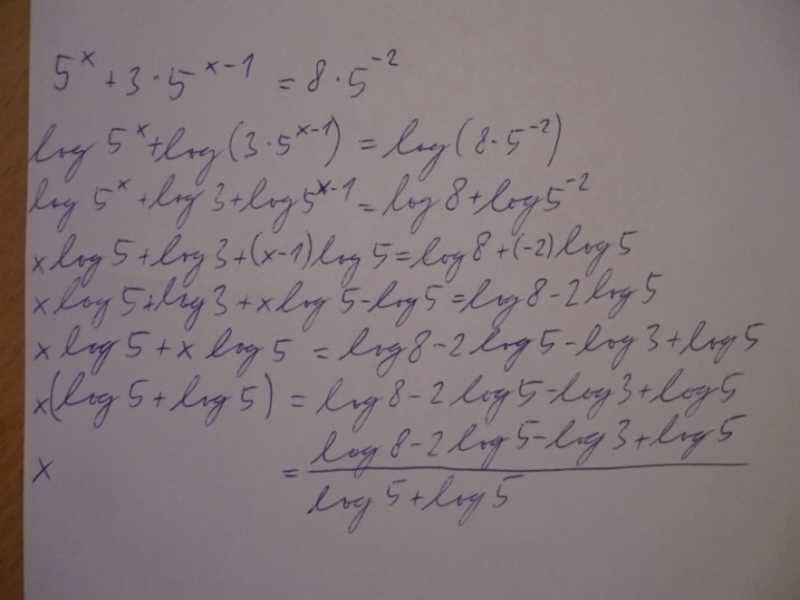 5^x + 3 · 5^(x-1) = 8 · 5^-2
log 5^x + log (3 · 5^(x-1)) = log (8 · 5^-2)
log 5^x + log 3 + log 5^(x-1) = log 8 + log 5^-2
x log 5 + log 3 + (x-1) log 5 = log 8 + (-2) log 5
x log 5 + log 3 + x log 5 - log 5 = log 8 - 2 log 5
x log 5 + x log 5 = log 8 - 2 log 5 - log 3 + log 5
x (log 5 + log 5) = log 8 - 2 log 5 - log 3 + log 5
x = (log 8 - 2 log 5 - log 3 + log 5) / (log 5 + log 5)